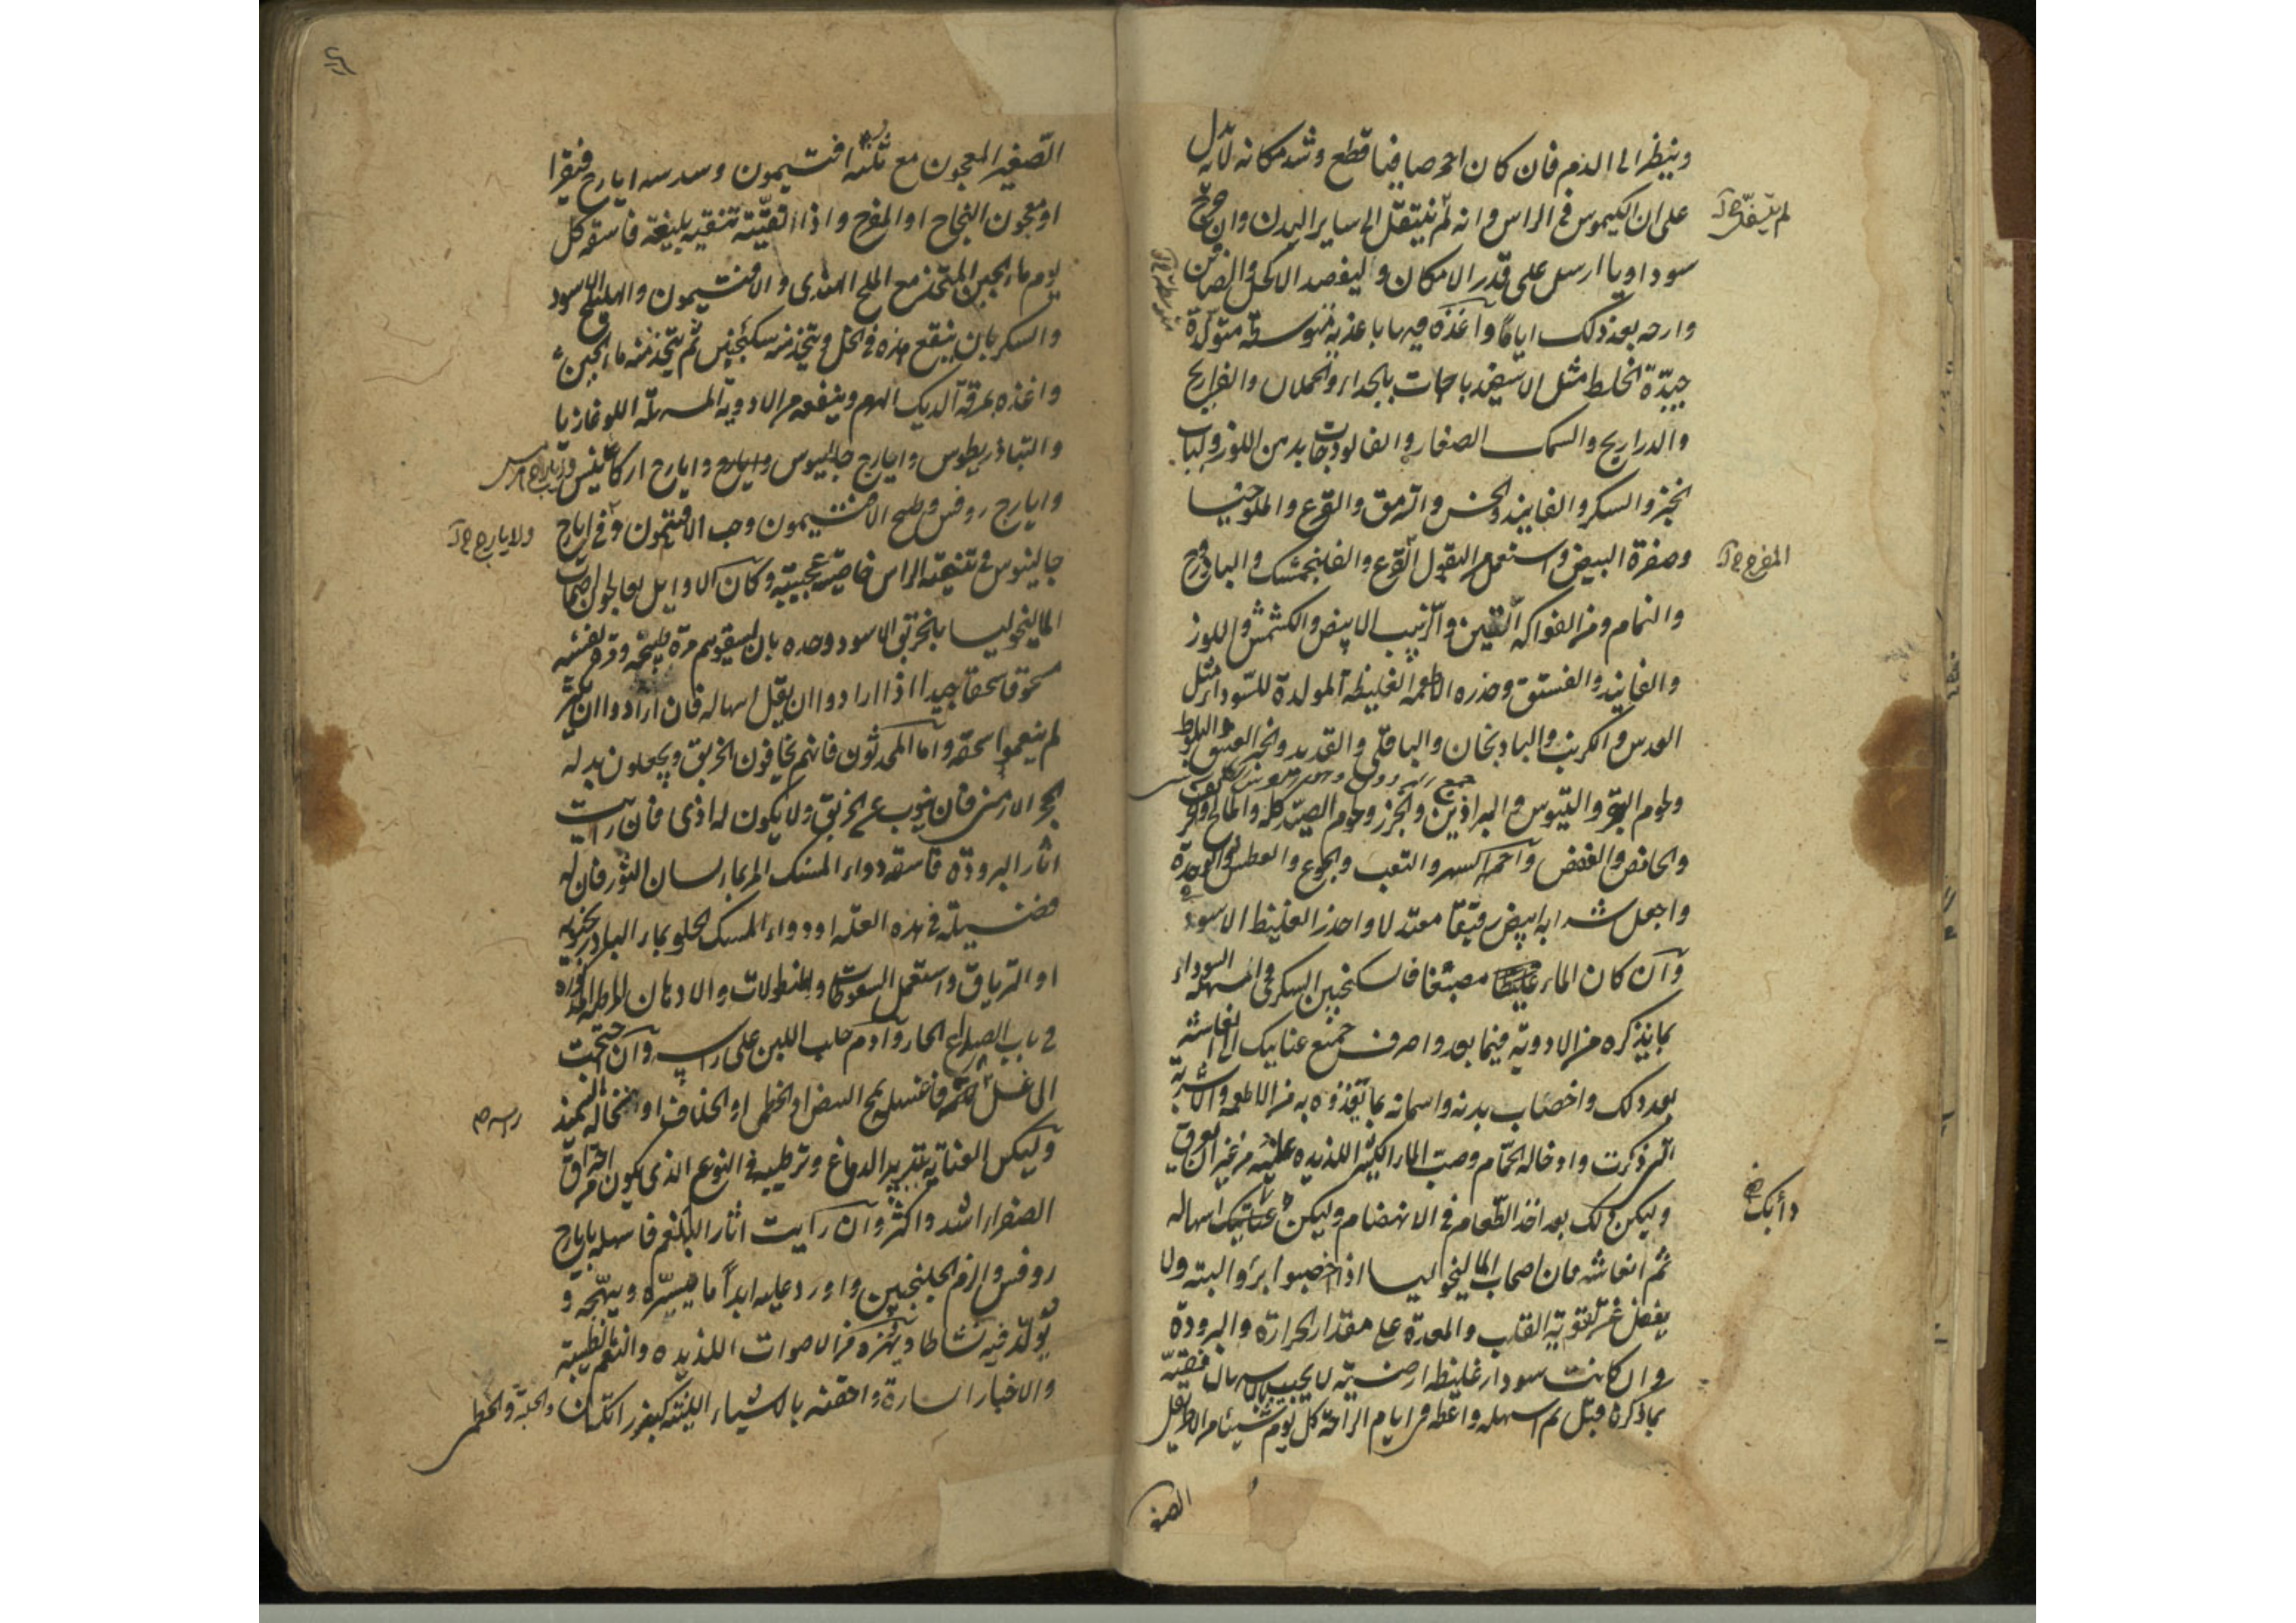 وينظر الى الدم فان كان احمر صافيا قطع وشد مكانه لانه يدل
على ان الكيموس في الراس وانه لم ينتقل الى ساير البدن وان خرج
لم يتفرق خ ل
سوداويا ارسل على قدر الامكان وليفصد الاكحل والصافن
وارحه بعد ذلك اياما واغذه فيها باغذية متوسطة متولدة
جيدة الخلط مثل الاسفيدباجات بالجداء والحملان والفراريج
والدراريج والسمك الصغار والفالوذجات بدهن اللوز ولباب
الخبز والسكر والفانيذ والخس والسرمق والقرع والملوخيا
وصفرة البيض واستعمل من البقول القرع والفلنجمشك والباذروج
المفرح خ ل
والنمام ومن الفواكه التين والزبيب الابيض والكشمش واللوز
والفانيذ والفستق وحذره الاطعمة الغليظة المولدة للسوداء مثل
العدس والكرنب والباذنجان والباقلى والقديد والخبز العتيق والبلوط
ولحوم البقر والتيوس والبراذين والجزر ولحوم الصيد كله والمالح والحر
والحامض والعفص واحمه السهر والتعب والجوع والعطش والوحدة
واجعل شرابه ابيض رقيقا معتدلا واحذر الغليظ الاسود
وان كان الماء منصبغا فالسكنجبين السكري والمسهلة السوداء
بما يذكره من الادوية فيما بعد واصرف جميع عنايتك الى انعاشه
بعد ذلك واخصاب بدنه واسمانه بما تغذوه به من الاطعمة والاشربة
التي ذكرت وادخاله الحمام وصب الماء الكثير اللذيذه عليه من غير ان يعرق
وليكن ذلك بعد اخذ الطعام في الانهضام وليكن عنايتك اسهاله
دأبك خ
ثم انعاشه فان اصحاب الماليخوليا اذا اخصبوا برؤا البتة ولا
يغفل عن تقوية القلب والمعدة على مقدار الحرارة والبرودة
وان كانت سوداء غليظة ارضية لا يجيب بالاسهال فنقيه
بما ذكره قبل ثم اسهله واعطه في ايام الراحة كل يوم شيئا من الاطريفل
الصغير
الصغير المعجون مع ثلثه افتيمون وسدسه ايارج فيقرا
او معجون النجاح او المفرح واذا انقيته تنقية بليغة فاسقه كل
يوم ماء الجبن المتخذ مع الملح الهندي والافتيمون والهليلج الاسود
والسكر بان ينقع هذه في الخل ويتخذ منه سكنجبين ثم يتخذ منه ماء الجبن
واغذه بمرقة الديك الهرم وينفعه من الادوية المسهلة اللوغاذيا
والتياذريطوس وايارج جالينوس وايارج اركاغانيس
وايارج روفس وطبيخ الافتيمون وحب الافتيمون وفي ايارج
ولايارج خ ل
جالينوس في تنقية الراس خاصية عجيبة وكان الاوايل يعالجون اصحاب
الماليخوليا بالخربق الاسود وحده بان يسقوهم مرة طبيخه ومرة نفسه
مسحوقا سحقا جيدا اذا ارادوا ان يقل اسهاله فان ارادوا ان يكثر
لم ينعموا سحقه واما المحدثون فانهم يخافون الخربق ويجعلون بدله
الحجر الارمني فان ينوب عن الخربق ولا يكون له اذى فان رايت
اثار البرودة فاسقه دواء المسك المر بماء لسان الثور فان له
فضيلة في هذه العلة او دواء المسك الحلو بماء الباذرنجبويه
او الترياق واستعمل السعوطات والنطولات والادهان المرطبة المذكورة
في باب الصداع الحار وادم حلب اللبن على راسه وان احتجت
الى غسل فاغسله بمح البيض او الخطمي او الخلاف او نخالة السميذ
راسه ص
وليكن العناية بتبريد الدماغ وترطيبه في النوع الذي يكون من احتراق
الصفراء اشد واكثر وان رايت اثار البلغم فاسهله بايارج
روفس والزم الجلنجبين واورد عليه ابدا ما يسره ويبهجه و
يولد فيه نشاطا ويهزه من الاصوات اللذيذه والنغم الطيبة
والاخبار السارة واحقنه بالاشياء اللينة كبزر الكتان والحلبة والخطمي